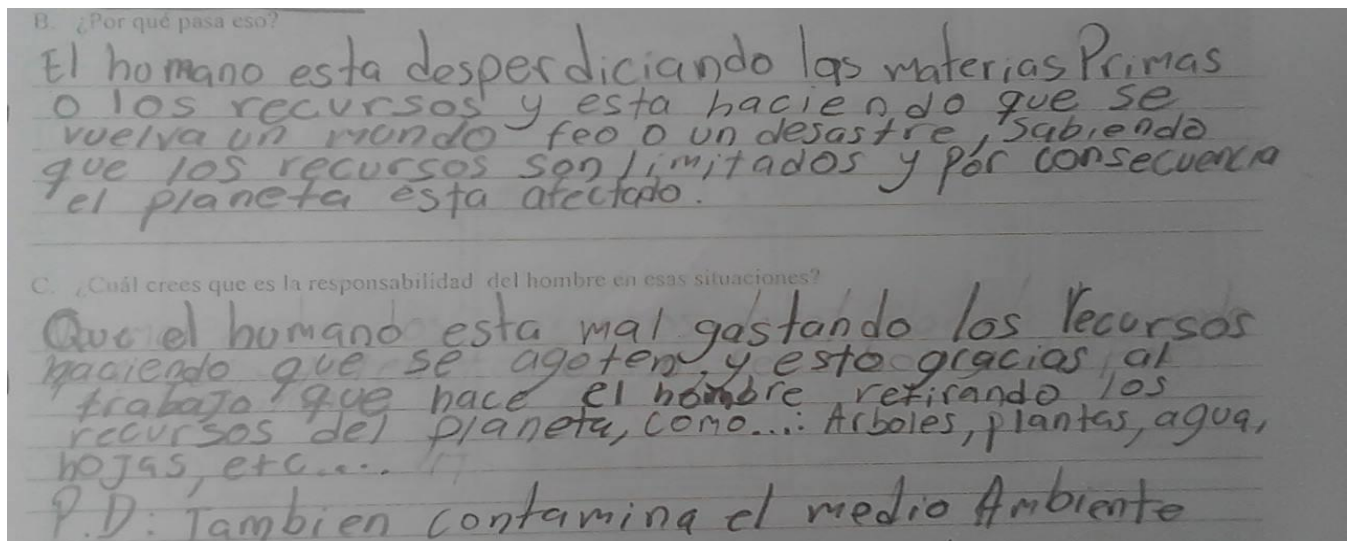 B. ¿Por qué pasa eso?
El homano esta desperdiciando las materias Primas
o los recursos y esta haciendo que se
vuelva un mundo feo o un desastre, sabiendo
que los recursos son limitados y por consecuencia
el planeta esta afectado.
C. ¿Cuál crees que es la responsabilidad del hombre en esas situaciones?
Que el humano esta mal gastando los recursos
haciendo que se agoten, y esto gracias al
trabajo que hace el hombre retirando los
recursos del planeta, como...: Arboles, plantas, agua,
hojas, etc....
P.D: Tambien contamina el medio Ambiente